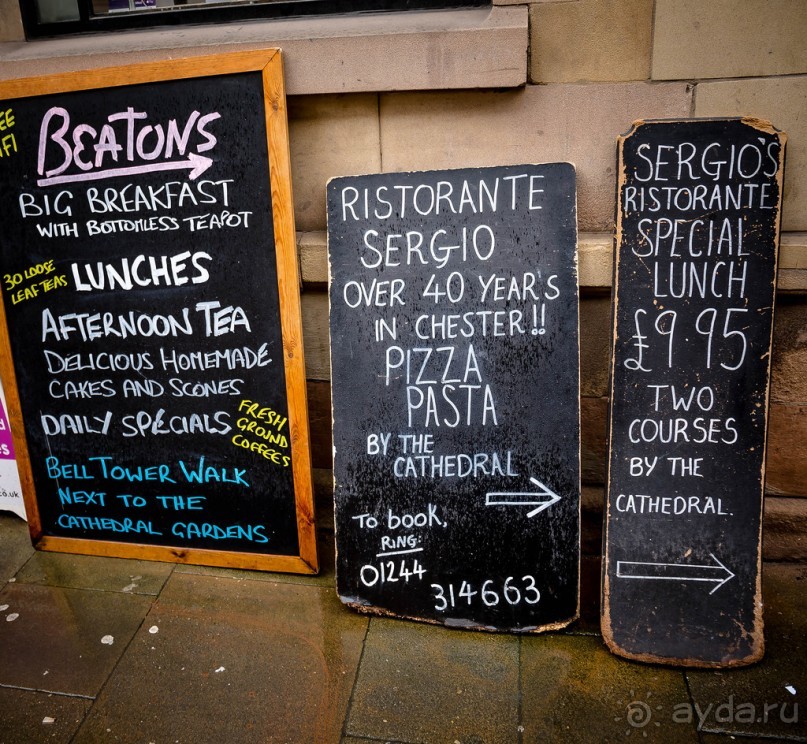 BEATONS
BIG BREAKFAST
WITH BOTTOMLESS TEAPOT
30 LOOSE
LEAF TEAS
LUNCHES
AFTERNOON TEA
DELICIOUS HOMEMADE
CAKES AND SCONES
DAILY SPECIALS
FRESH
GROUND
COFFEES
BELL TOWER WALK
NEXT TO THE
CATHEDRAL GARDENS
RISTORANTE
SERGIO
OVER 40 YEAR'S
IN CHESTER!!
PIZZA
PASTA
BY THE
CATHEDRAL
TO BOOK,
RING:
01244
314663
SERGIO'S
RISTORANTE
SPECIAL
LUNCH
£9.95
TWO
COURSES
BY THE
CATHEDRAL.
ayda.ru